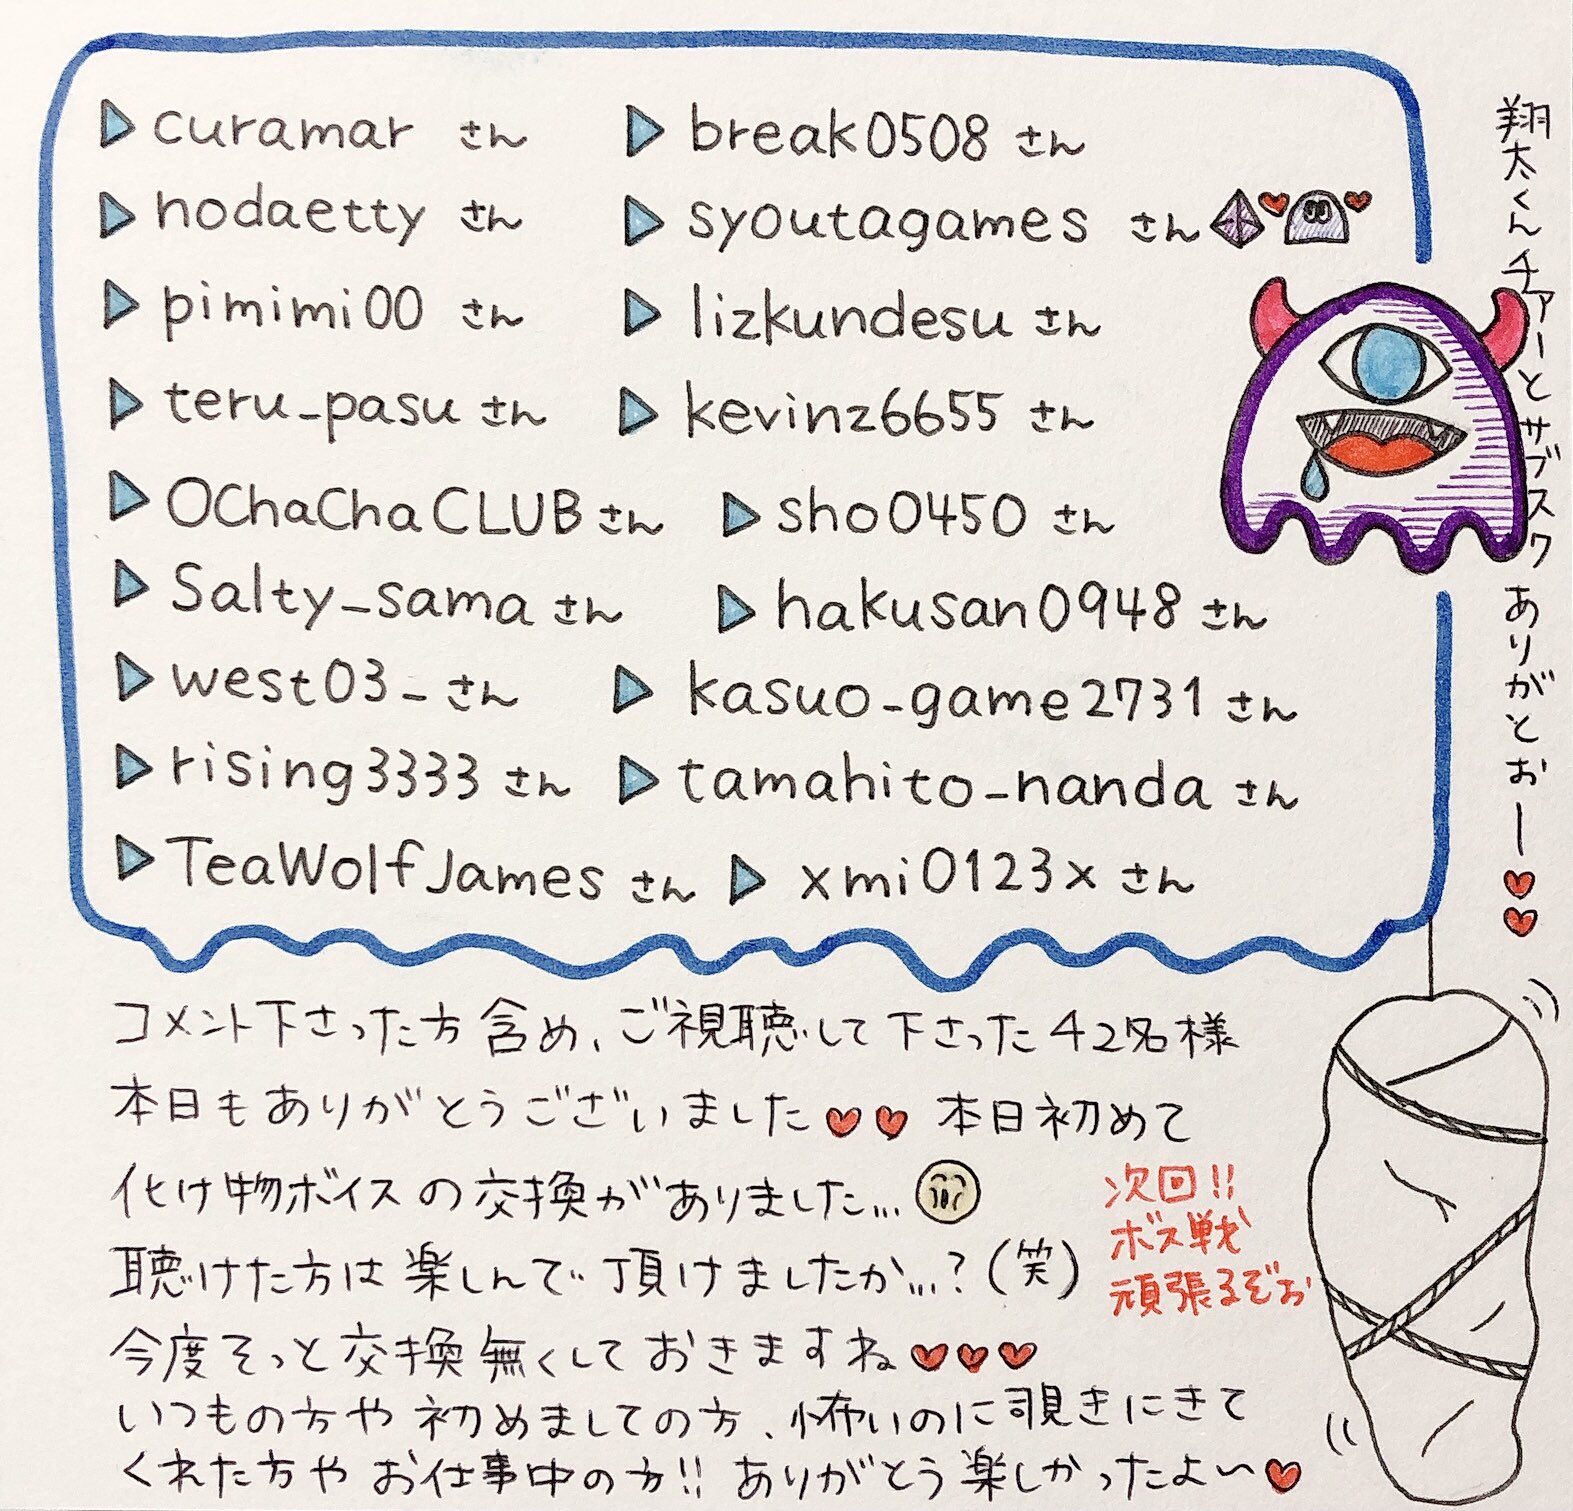 curamar さん
break0508 さん
nodaetty さん
syoutagames さん
pimimi00 さん
lizkundesu さん
teru_pasu さん
kevinz6655 さん
OChaChaCLUB さん
sho0450 さん
Salty_sama さん
hakusan0948 さん
west03_ さん
kasuo_game2731 さん
rising3333 さん
tamahito_nanda さん
TeaWolfJames さん
xmi0123x さん
翔太くん チアーと サブスク ありがとおー
コメント下さった方含め、ご視聴して下さった42名様
本日もありがとうございました 本日初めて
化け物ボイスの交換がありました...
聴けた方は楽しんで頂けましたか...?(笑)
今度そっと交換無くしておきますね
いつもの方や初めましての方、怖いのに覗きにきて
くれた方やお仕事中の方!! ありがとう楽しかったよい
次回!!
ボス戦
頑張るぞお